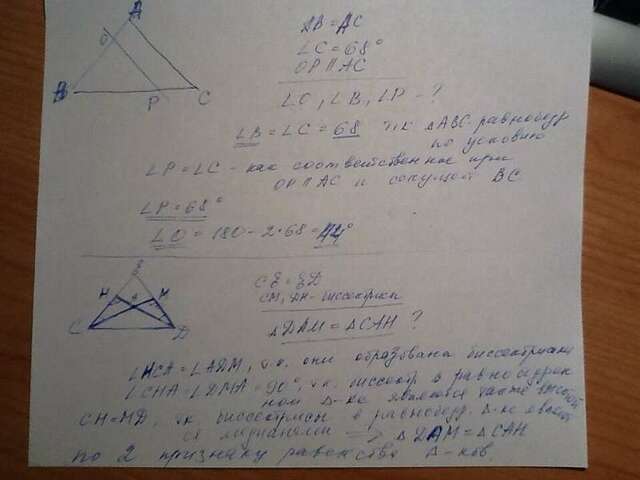 A
O
B
P
C
AB = AC
∠C = 68°
OP || AC
∠O, ∠B, ∠P - ?
∠B = ∠C = 68 т.к ΔABC равнобедр
по условию
∠P = ∠C - как соответственные при
OP || AC и секущей BC
∠P = 68°
∠O = 180 - 2·68 = 44°
H
M
C
D
CE = ED
CM, DH - биссектрисы
ΔDAM = ΔCAH ?
∠HCA = ∠ADM, т.к. они образованы биссектрисами
∠CHA = ∠DMA = 90°, т.к. биссектр в равнобедрен
ном Δ-ке является также высотой
CH = MD, т.к. биссектрисы в равнобедр. Δ-ке являют
ся медианами => ΔDAM = ΔCAH
по 2 признаку равенства Δ-ков.